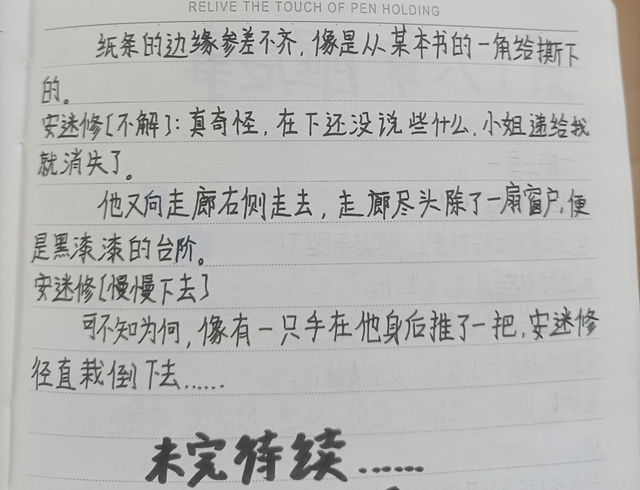 RELIVE THE TOUCH OF PEN HOLDING
纸条的边缘参差不齐，像是从某本书的一角给撕下
的。
安迷修[不解]：真奇怪，在下还没说些什么，小姐递给我
就消失了。
他又向走廊右侧走去，走廊尽头除了一扇窗户，便
是黑漆漆的台阶。
安迷修[慢慢下去]
可不知为何，像有一只手在他身后推了一把，安迷修
径直栽倒下去……
未完待续……